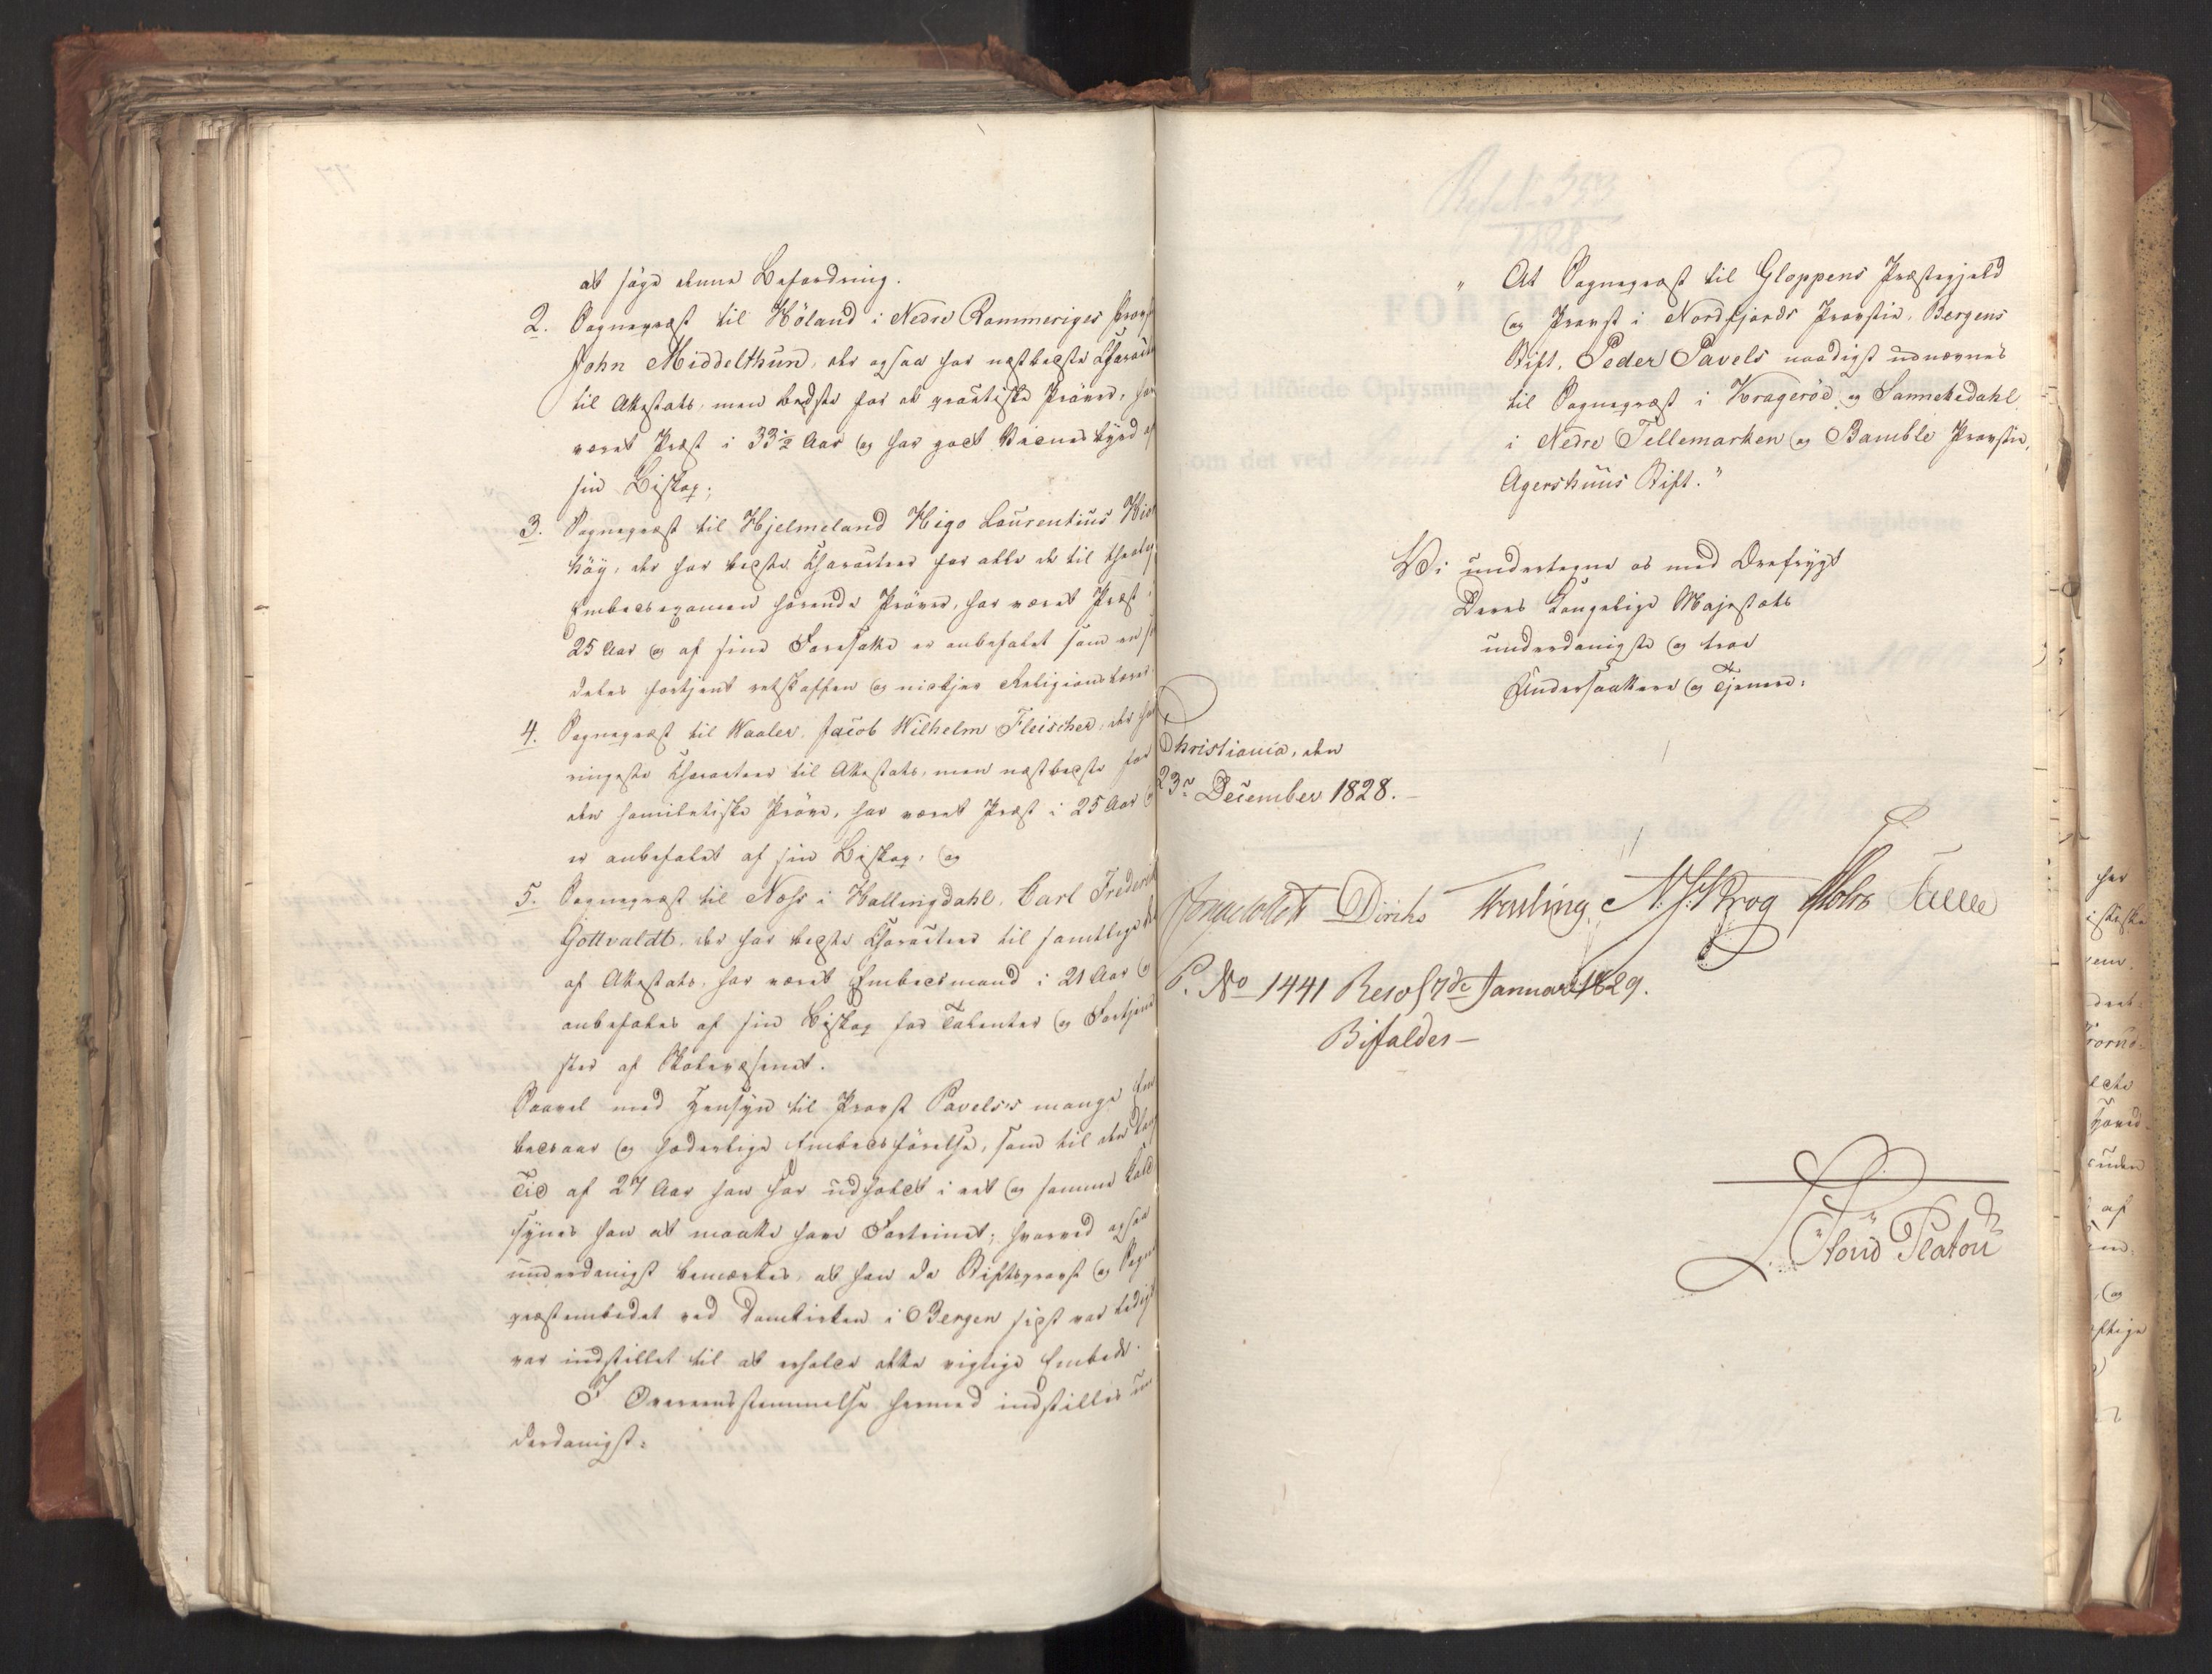 at søge denne Befordring.
2. Sognepræst til Höland i Nedre Rommeriges Provst
John Middelthun, der ogsaa har næstbedste Charact
til Attestats, men bedste for de practiske Prøver, har
været Præst i 33½ Aar og har godt Vidnesbyrd af
sin Biskop;
3. Sognepræst til Hjelmeland Higo Laurentius
høy, der har bedste Characteer for alle de til theolog
Embedsexamen hørende Prøver, har været Præst i
25 Aar og af sine Foresatte er anbefalet som en s
deles fortjent retskaffen og nidkjær Religionslærer
4. Sognepræst til Waaler, Jacob Wilhelm Fleischer, der har
ringeste Charakteer til Attestats, men næstbedste for
den homiletiske Prøve, har været Præst i 25 Aar og
er anbefalet af sin Biskop; og
5. Sognepræst til Næss i Hallingdahl, Carl Frederik
Gottwaldt, der har bedste Charakteer til samtlige
af Attestats, har været Embedsmand i 21 Aar og
anbefales af sin Biskop for Talenter og Fortjene
ster af Skolevæsenet.
Saavel med Hensyn til Provst Pavels's mange Em
bedsaar og hæderlige Embedsførelse, som til den lange
Tid af 27 Aar han har udholdt i eet og samme Kald
synes han at maatte have Fortrinet; hvorved ogsaa
underdanigst bemærkes, at han da Stiftsprovst og Sogne
præstembedet ved Domkirken i Bergen sidst var ledigt
var indstillet til at erholde dette vigtige Embede.
I Overeensstemmelse hermed indstilles un
derdanigst:
" At Sognepræst til Gloppens Præstegjeld
og Provst i Nordfjords Provstie, Bergens
Stift, Peder Pavels naadigst udnævnes
til Sognepræst i Krageröe og Sannikedahl
i Nedre Tellemarken og Bamble Provstie,
Agershuus Stift."
Vi undertegne os med Ærefrygt
Deres Kongelige Majestæts
underdanigste og troe
Undersaattere og Tjenere:
Christiania, den
23de December 1828.
Diriks Treschow N. J. Krog Holst Fasting
P. No 1441 Resol 7de Januar 1829.
Bifaldes —
Platou